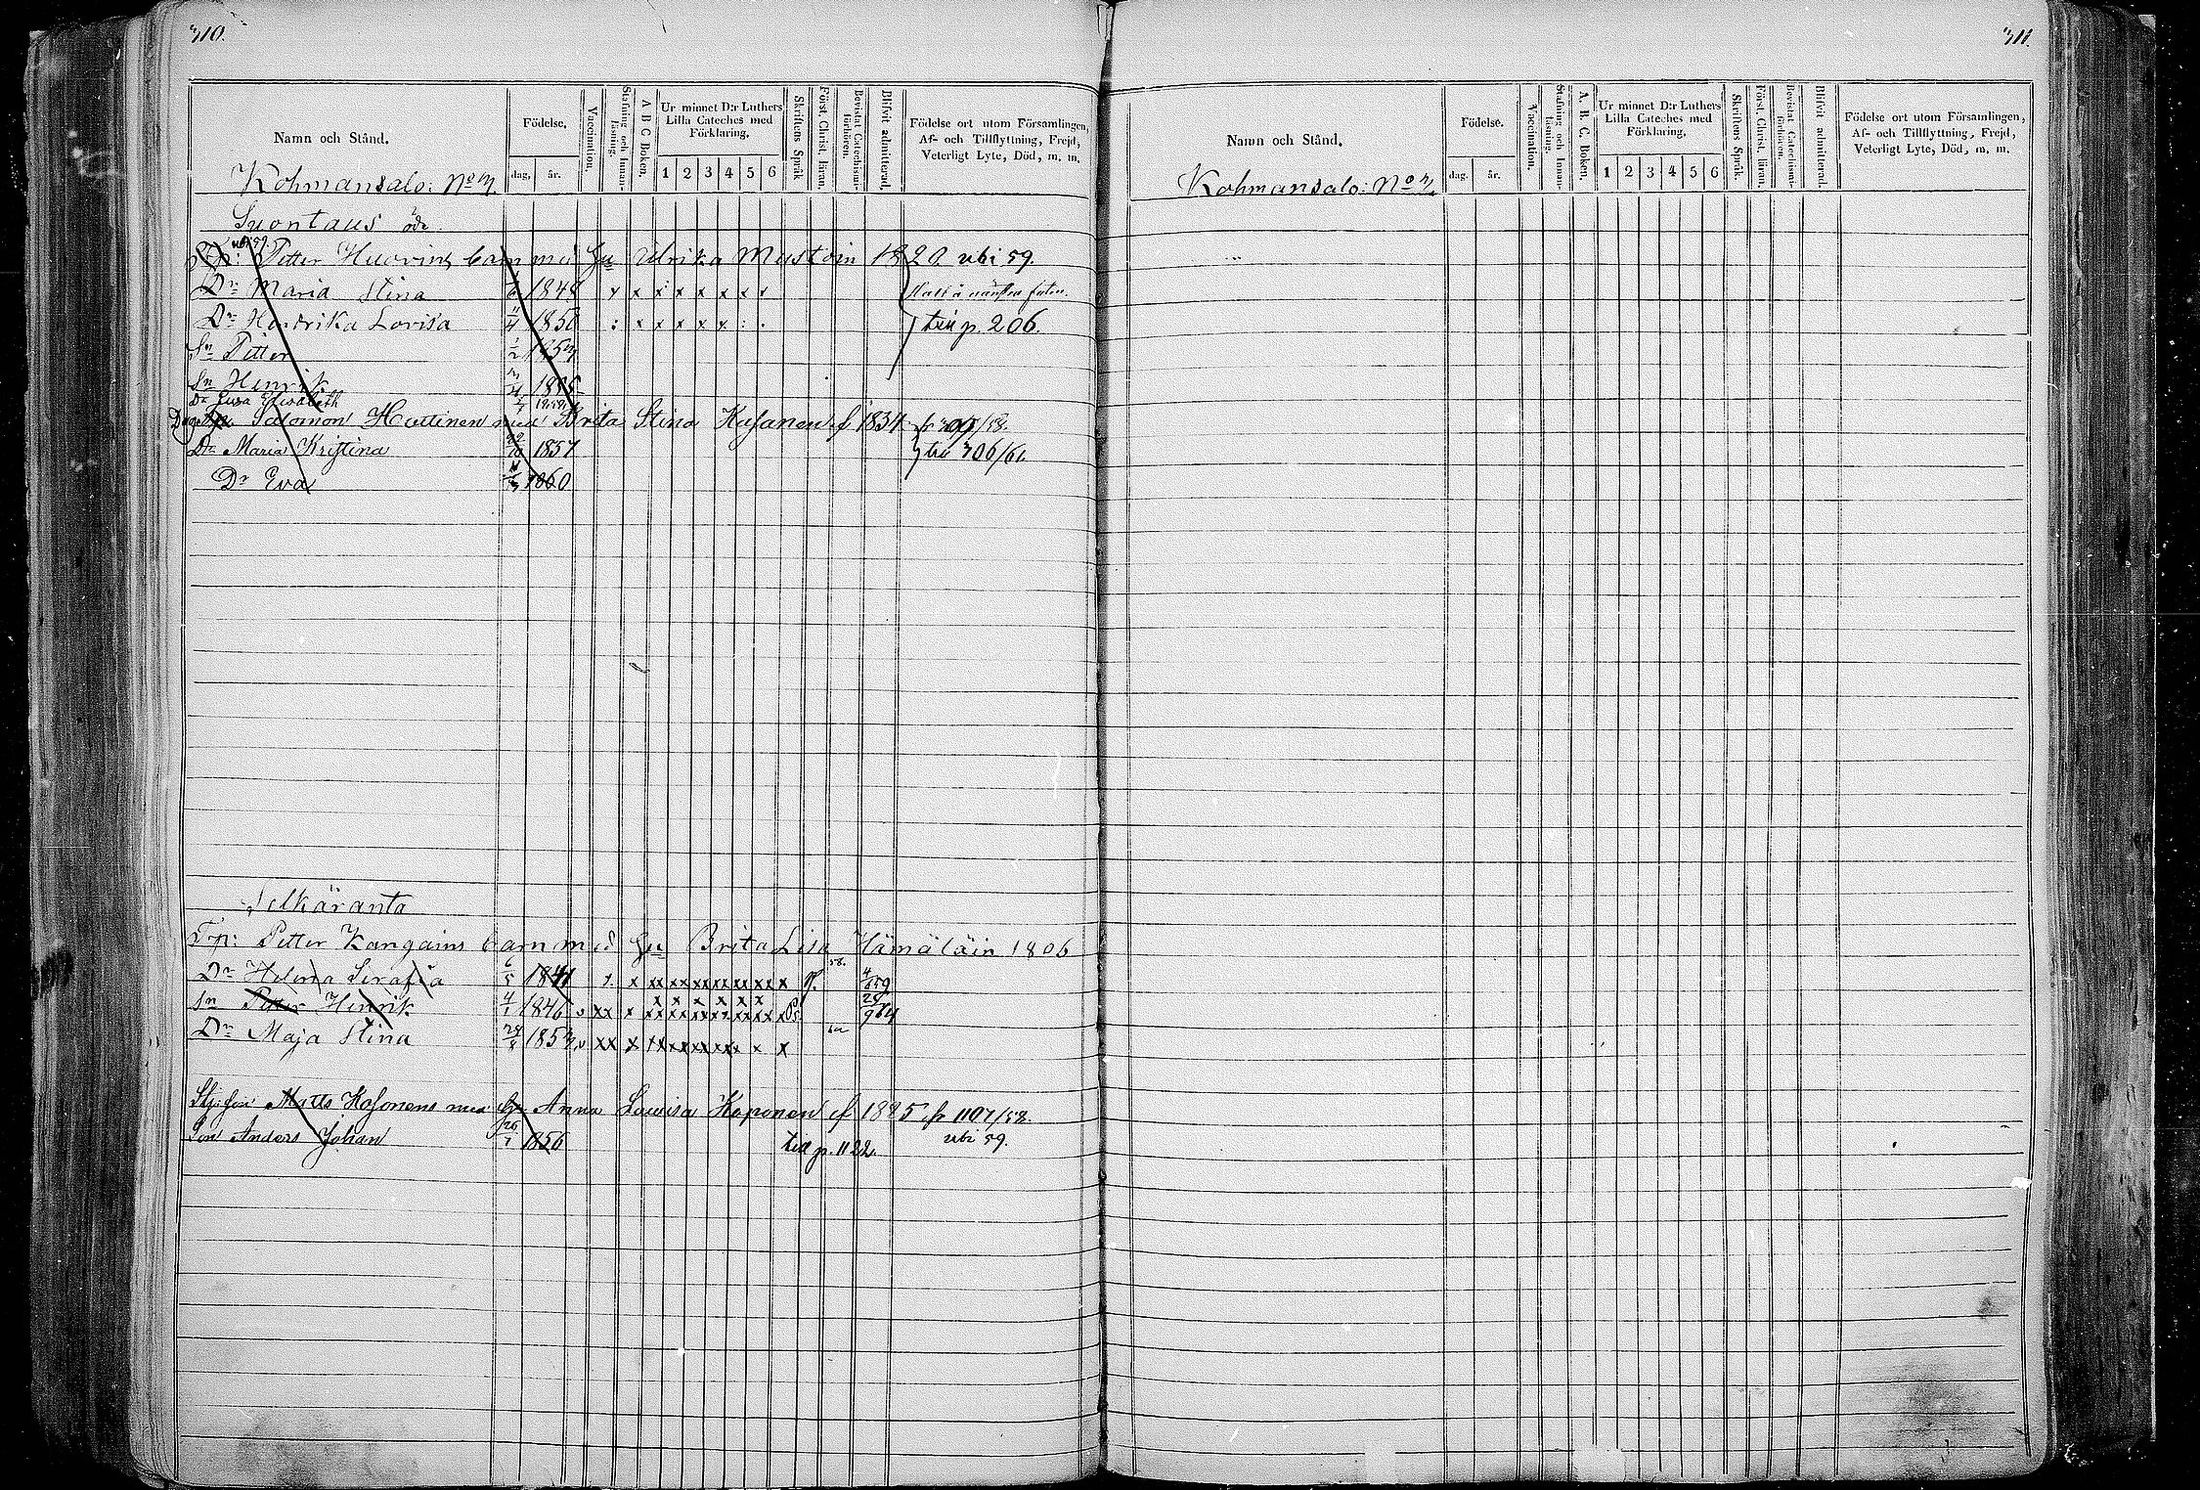 310.
Namn och Stånd.
Födelse.
dag. år.
Vaccination.
Stafning och Innan-läsning.
A B C Boken.
Ur minnet D:r Luthers Lilla Cateches med Förklaring.
1 2 3 4 5 6
Skriftens Språk
Först. Christ. läran.
Bevistat Catechismi-förhören.
Blifvit admitterad.
Födelse ort utom Församlingen, Af- och Tillflyttning, Frejd, Veterligt Lyte, Död, m. m.
Kohmansalo: No 3/
Suontaus öde
Tp: Petter Huovins barn med Hu Ulrika Muston 1820 ubi 59.
Dr Maria Stina 1848 x x x x x x x x
Dr Hendrika Lovisa 11/4 1850 till p. 206.
Sn Petter 1/2 1853
Sn Henrik 1855
Dr Eva Elisabeth 1859
Salomon Huttinen med Brita Stina Kasanen f 1834
Dr Maria Kristina 1857 till 306/61.
Dr Eva 1860
Selkäranta
Tp: Petter Kangains barn med Hu Brita Lisa Hämäläin 1806
Dr Helena Serafia 6/5 1841 4/5 59
Sn Petter Henrik 4/1 1846 28/9 64
Dr Maja Stina 28/8 1853
Matts Kasonens med Hu Anna Lovisa Koponen f 1825 fr 1107/58.
Son Anders Johan 26/7 1856 till p. 1122. ubi 59.
311.
Namn och Stånd.
Födelse.
dag. år.
Vaccination.
Stafning och Innan-läsning.
A. B. C. Boken.
Ur minnet D:r Luthers Lilla Cateches med Förklaring.
1 2 3 4 5 6
Skriftens Språk.
Först. Christ. läran.
Bevistat Catechismi-förhören.
Blifvit admitterad.
Födelse ort utom Församlingen, Af- och Tillflyttning, Frejd, Veterligt Lyte, Död, m. m.
Kohmansalo: No 3/